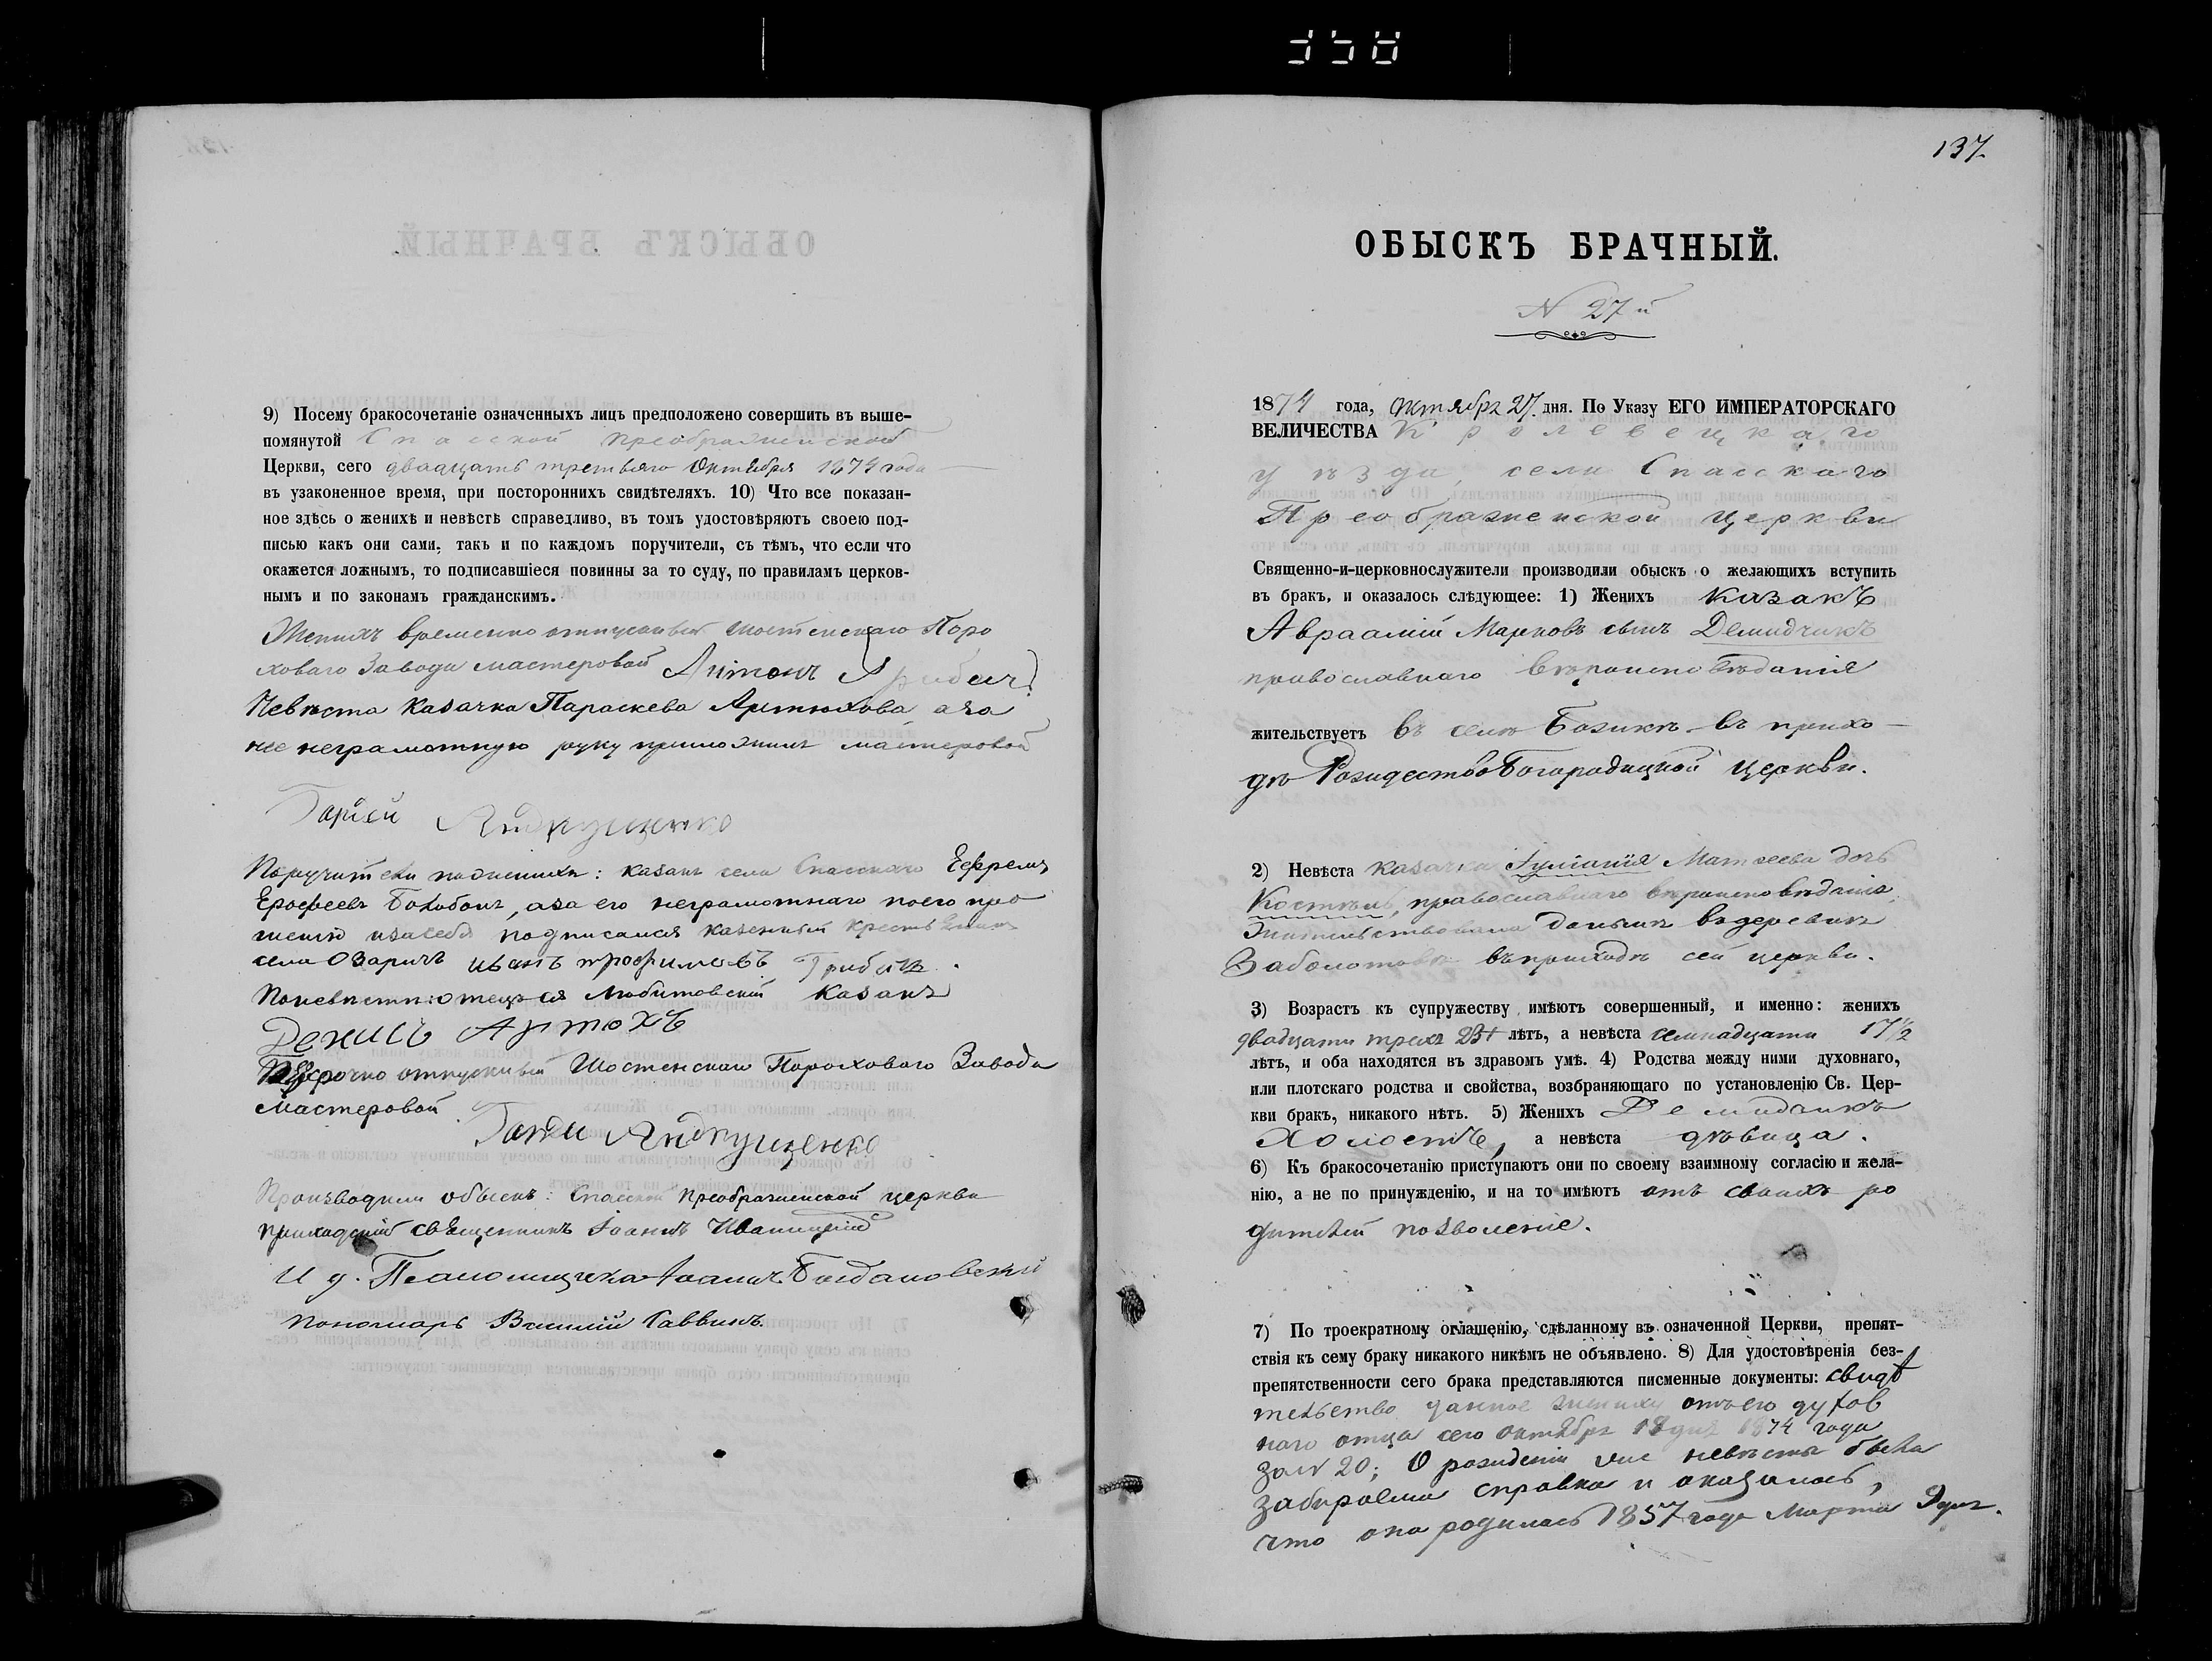 9) Посему бракосочетаніе означенныхъ лицъ предположено совершить въ выше-
помянутой Спасской Преображенской
Церкви, сего двадцать третьяго Октября 1874 года
въ узаконенное время, при постороннихъ свидѣтеляхъ. 10) Что все показан-
ное здѣсь о женихѣ и невѣстѣ справедливо, въ томъ удостовѣряютъ своею под-
писью какъ они сами, такъ и по каждомъ поручители, съ тѣмъ, что если что
окажется ложнымъ, то подписавшіеся повинны за то суду, по правиламъ церков-
нымъ и по законамъ гражданскимъ.
Женихъ временно отпускный Шостенскаго Поро
ховаго Завода мастеровой Антонъ
Невѣста казачка Параскева Артюхова а за
нее неграмотную руку приложилъ мастеровой
Андрущенко
Поручители по женихѣ: казакъ села Спасскаго Ефремъ
Ерофеевъ, а за его неграмотнаго по его про
шенію и за себя подписался казенный крестьянинъ
села Озаричъ иванъ трофимовъ Грибачъ.
По невѣстѣ: отец ея Любитовский казакъ
Денисъ Артюхъ
отпускный Шостенскаго Пороховаго Завода
мастеровой
Андрущенко
Производили обыскъ: Спасской Преображенской церкви
приходскій священникъ Іоаннъ
И д. Псаломщика Іоаннъ Богдановскій
Пономарь Василій Саввинъ.
137.
ОБЫСКЪ БРАЧНЫЙ.
N 27й
1874 года, Октября 27 дня. По Указу ЕГО ИМПЕРАТОРСКАГО
ВЕЛИЧЕСТВА Кролевецкаго
уѣзда, села Спасскаго
Преображенской церкви
Священно-и-церковнослужители производили обыскъ о желающихъ вступить
въ бракъ, и оказалось слѣдующее: 1) Женихъ казакъ
Авраамій Марковъ сынъ Демидчикъ
православнаго вѣроисповѣданія
жительствуетъ въ селѣ Божикѣ въ прихо-
дѣ Рождество Богородицкой церкви.
2) Невѣста казачка Іуліанія Матѳеева дочь
Костюкъ, православнаго вѣроисповѣданія,
жительствовала донынѣ въ деревнѣ
Заболотовѣ въ приходѣ сей церкви.
3) Возрастъ къ супружеству имѣютъ совершенный, и именно: женихъ
двадцати трехъ 23 лѣтъ, а невѣста семнадцати 17 1/2
лѣтъ, и оба находятся въ здравомъ умѣ. 4) Родства между ними духовнаго,
или плотскаго родства и свойства, возбраняющаго по установленію Св. Цер-
кви бракъ, никакого нѣтъ. 5) Женихъ Демидчикъ
Холостъ, а невѣста дѣвица.
6) Къ бракосочетанію приступаютъ они по своему взаимному согласію и жела-
нію, а не по принужденію, и на то имѣютъ отъ своихъ ро
дителей позволеніе.
7) По троекратному оглашенію, сдѣланному въ означенной Церкви, препят-
ствія къ сему браку никакого никѣмъ не объявлено. 8) Для удостовѣренія без-
препятственности сего брака представляются писменные документы: свидѣ
тельство данное жениху отъ его духов
наго отца сего октября 18 дня 1874 года
за N 20; О рожденіи же невѣсты была
забираема справка и оказалось,
что она родилась 1857 года Марта 9 дня.